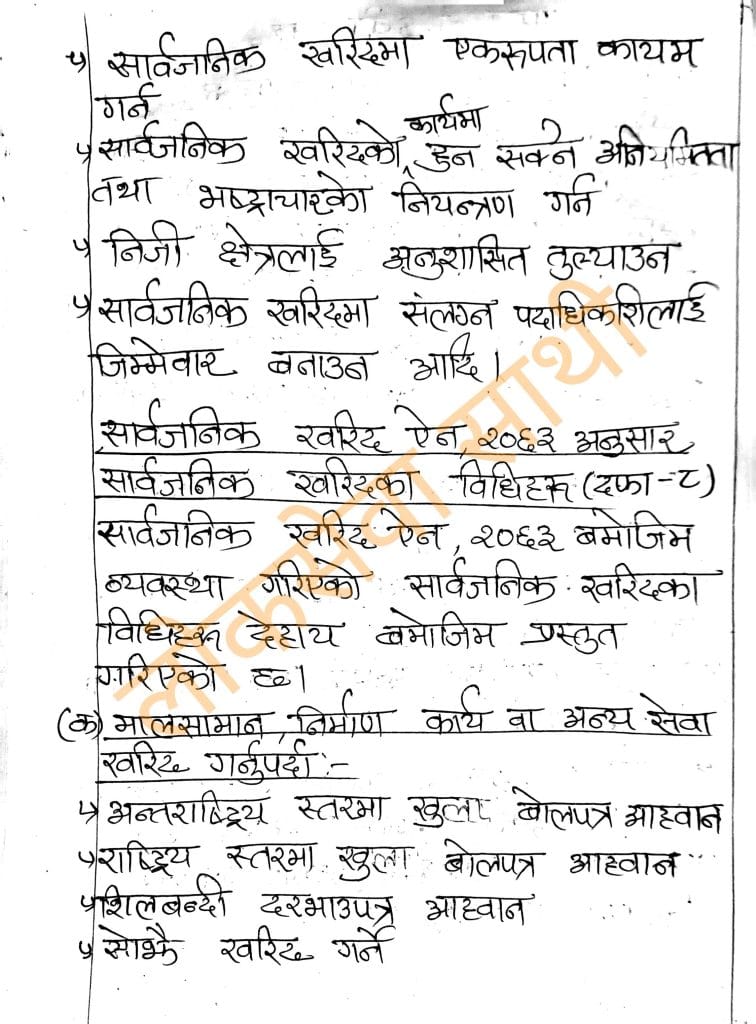 सार्वजनिक खरिदमा एकरुपता कायम
गर्न
सार्वजनिक खरिदको कार्यमा हुन सक्ने अनियमितता
तथा भष्ट्राचारको नियन्त्रण गर्न
निजी क्षेत्रलाई अनुशासित तुल्याउन
सार्वजनिक खरिदमा संलग्न पदाधिकारीलाई
जिम्मेवार बनाउन आदि।
सार्वजनिक खरिद ऐन, २०६३ अनुसार
सार्वजनिक खरिदका विधिहरू (दफा-८)
सार्वजनिक खरिद ऐन, २०६३ बमोजिम
व्यवस्था गरिएको सार्वजनिक खरिदका
विधिहरू देहाय बमोजिम प्रस्तुत
गरिएको छ।
(क) मालसामान, निर्माण कार्य वा अन्य सेवा
खरिद गर्नुपर्दा :-
अन्तराष्ट्रिय स्तरमा खुला बोलपत्र आह्वान
राष्ट्रिय स्तरमा खुला बोलपत्र आह्वान
शिलबन्दी दरभाउपत्र आह्वान
सोझै खरिद गर्ने
लोकसेवा साथी